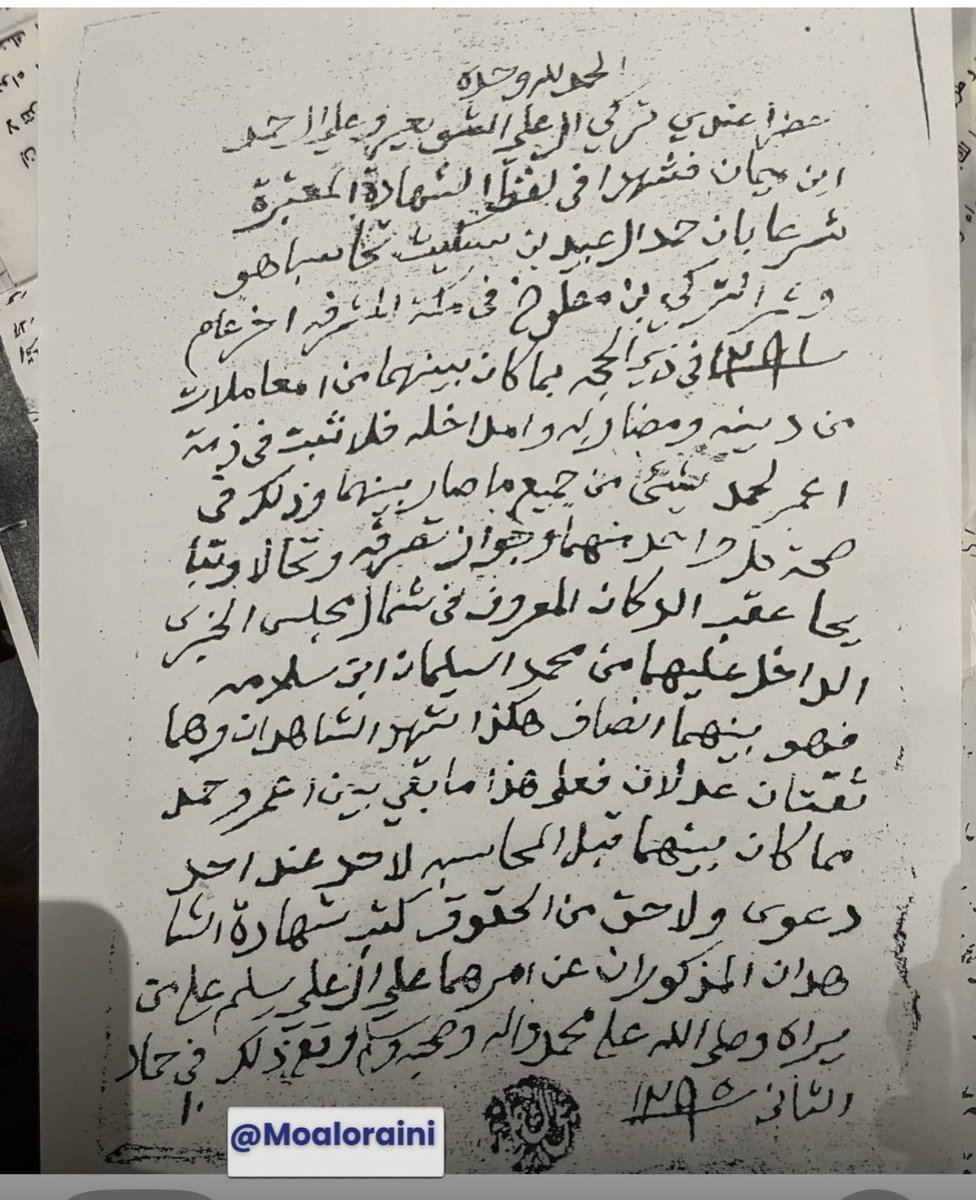 الحمد لله وحده
حضرا عندي تركي العلي الشويعر وعلي الاحمد
ابن ميمان فشهدا في لفظ الشهادة المعتبرة
شرعا بان حمد العبيد بن سكيت تحاسبا هو
وعمر التركي بن معلوخ في مكة المشرفه اخر عام
١٢٩١ في ذي الحجه بما كان بينهما من امعاملات
من دينه ومضاربه وامداخله فلا ثبت في ذمة
اعمر لحمد شيئ من جميع ما صار بينهما وذلك في
صحة كل واحد منهما وجواز تصرفه وتحالا وتبا
يحا عقب الدكان المعروف في شمال مجلس
الداخل عليهما من محمد السليمان ابن سلامه
فهو بينهما انصاف هكذا شهد الشاهدان وهما
ثقتان عدلان فعلى هذا ما بقي بين اعمر وحمد
مما كان بينهما قبل المحاسبه لاحد عند احد
دعوى ولا حق من الحقوق كتب شهادة الشا
هدان المذكوران عن امرهما علي العلي سلم على من
يراه وصلى الله على محمد واله وصحبه وسلم وقع ذلك في جماد
الثاني ١٢٩٥
١٠
@Moaloraini